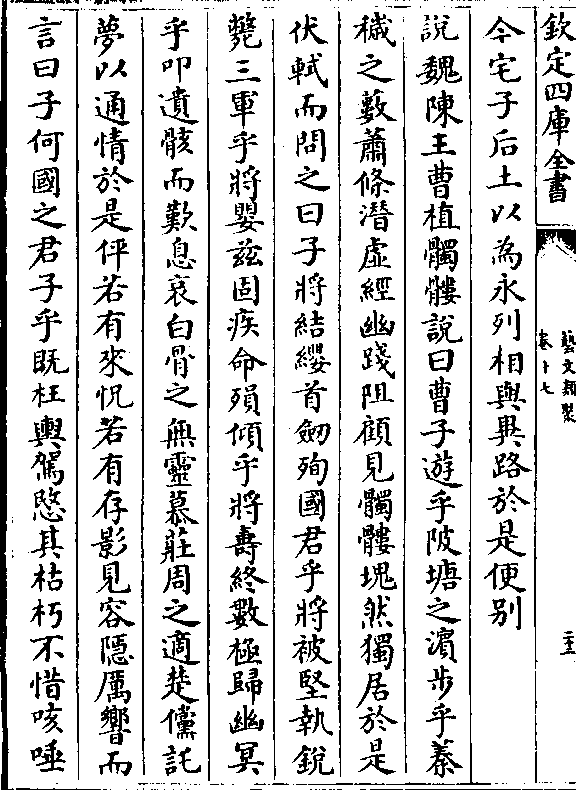 欽定四庫全書
藝文類聚
卷十七
二十一
今宅子后土以為永列相與異路於是便别
說魏陳王曹植髑髏說曰曹子遊乎陂塘之濱步乎蓁
穢之藪蕭條潛虛經幽踐阻顧見髑髏塊然獨居於是
伏軾而問之曰子將結纓首劒殉國君乎將被堅執銳
斃三軍乎將嬰兹固疾命殞傾乎將壽終數極歸幽冥
乎叩遺骸而歎息哀白骨之無靈慕莊周之適楚儻託
夢以通情於是伻若有來怳若有存影見容隱厲響而
言曰子何國之君子乎既枉輿駕愍其枯朽不惜咳唾